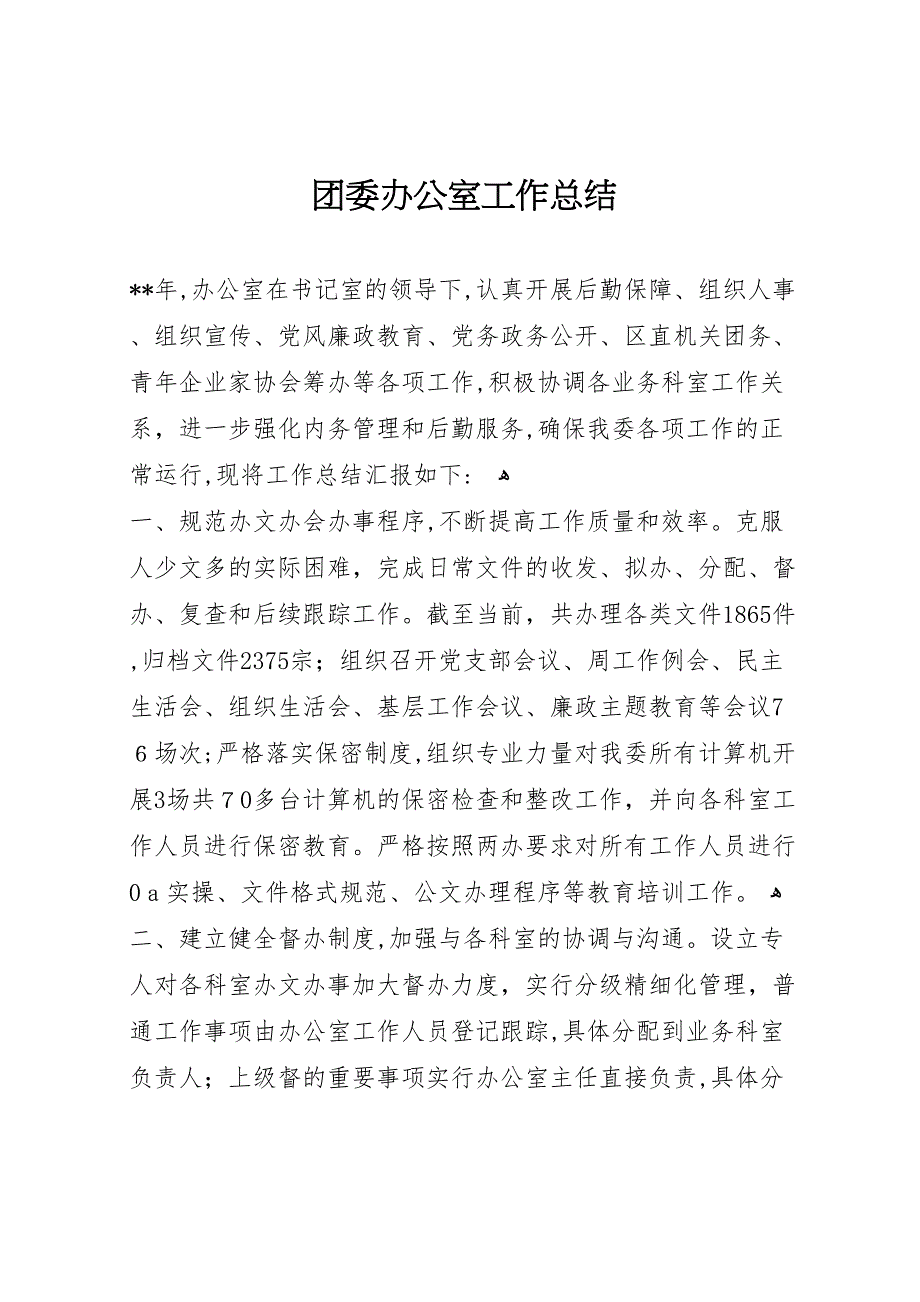 团委办公室工作总结
**年,办公室在书记室的领导下,认真开展后勤保障、组织人事
、组织宣传、党风廉政教育、党务政务公开、区直机关团务、
青年企业家协会筹办等各项工作,积极协调各业务科室工作关
系，进一步强化内务管理和后勤服务,确保我委各项工作的正
常运行,现将工作总结汇报如下: ﻫ
一、规范办文办会办事程序,不断提高工作质量和效率。克服
人少文多的实际困难，完成日常文件的收发、拟办、分配、督
办、复查和后续跟踪工作。截至当前，共办理各类文件1865件
,归档文件2375宗；组织召开党支部会议、周工作例会、民主
生活会、组织生活会、基层工作会议、廉政主题教育等会议7
６场次;严格落实保密制度,组织专业力量对我委所有计算机开
展3场共７0多台计算机的保密检查和整改工作，并向各科室工
作人员进行保密教育。严格按照两办要求对所有工作人员进行
0a实操、文件格式规范、公文办理程序等教育培训工作。 ﻫ
二、建立健全督办制度,加强与各科室的协调与沟通。设立专
人对各科室办文办事加大督办力度，实行分级精细化管理，普
通工作事项由办公室工作人员登记跟踪,具体分配到业务科室
负责人；上级督的重要事项实行办公室主任直接负责,具体分